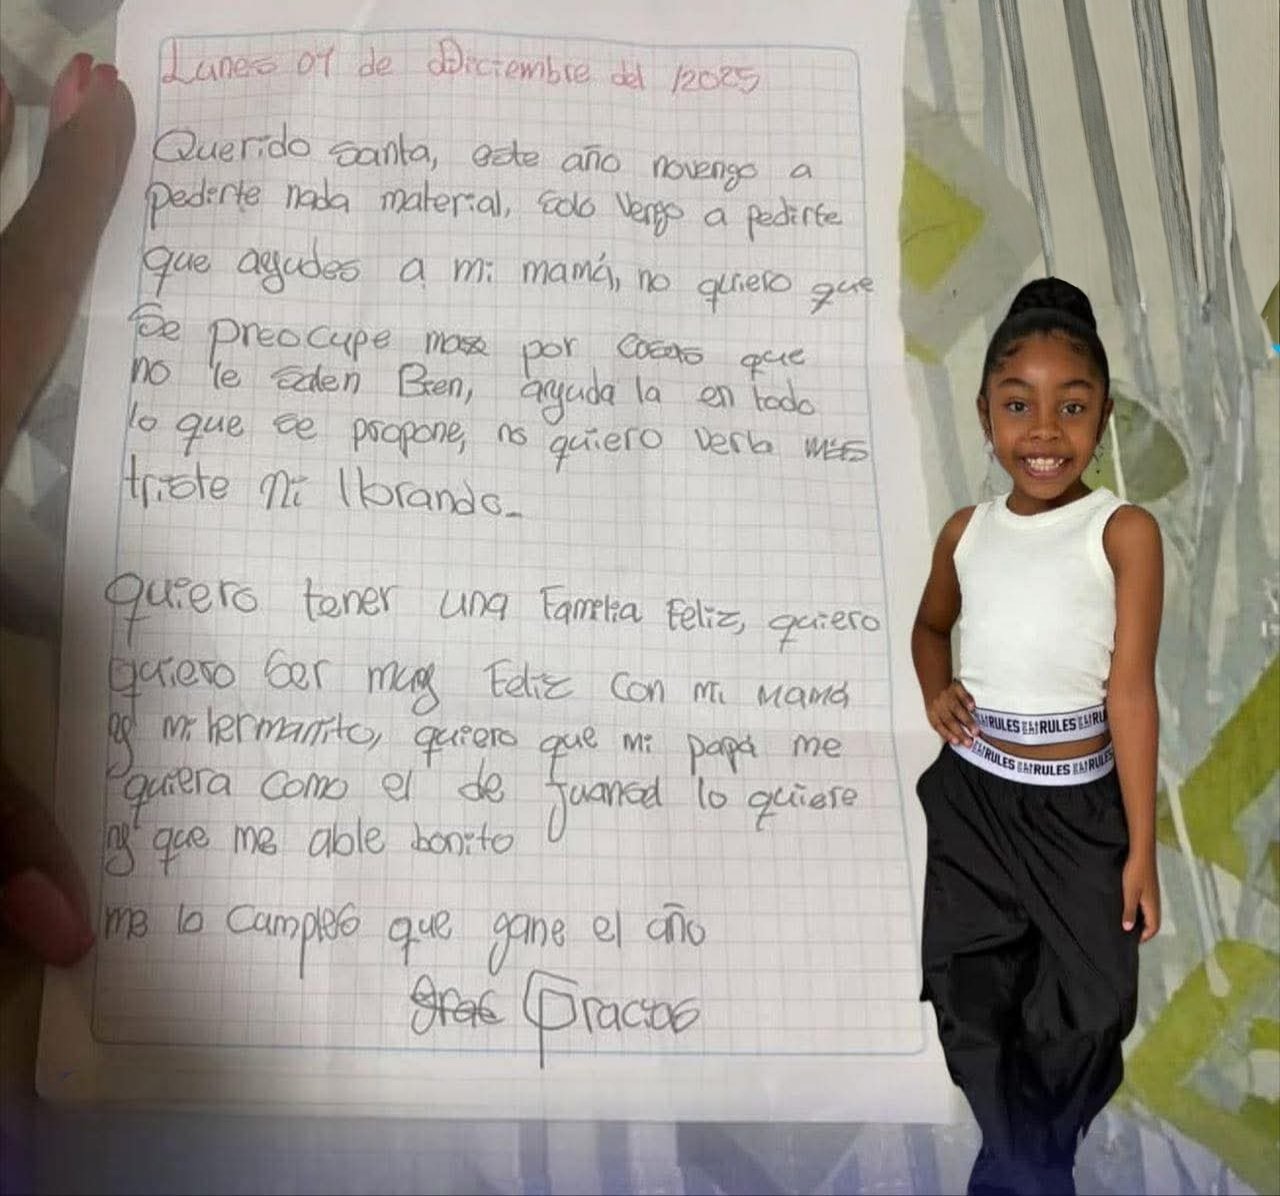 Lunes 01 de Diciembre del /2025
Querido santa, este año novengo a
pedirte nada material, solo Vengo a pedirte
que ayudes a mi mamá, no quiero que
Se preocupe mas por cosas que
no le salen Bien, ayuda la en todo
lo que se propone, no quiero verla mas
triste ni llorando_
quiero tener una Familia Feliz, quiero
quiero ser muy Feliz con mi mamá
y mi hermanito, quiero que mi papá me
quiera como el de juanad lo quiere
y que me able bonito
me lo Cumplas que gane el año
Gracias
RULES RULES
RULES RULES RULES